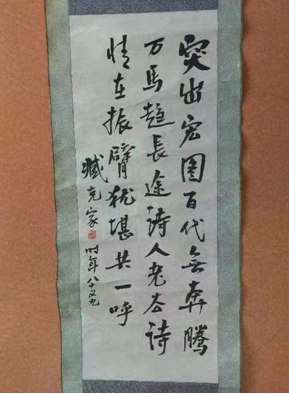 突出宏图百代无奔腾
万马趋长途诗人老去诗
情在振臂犹堪共一呼
臧克家
时年八十又九